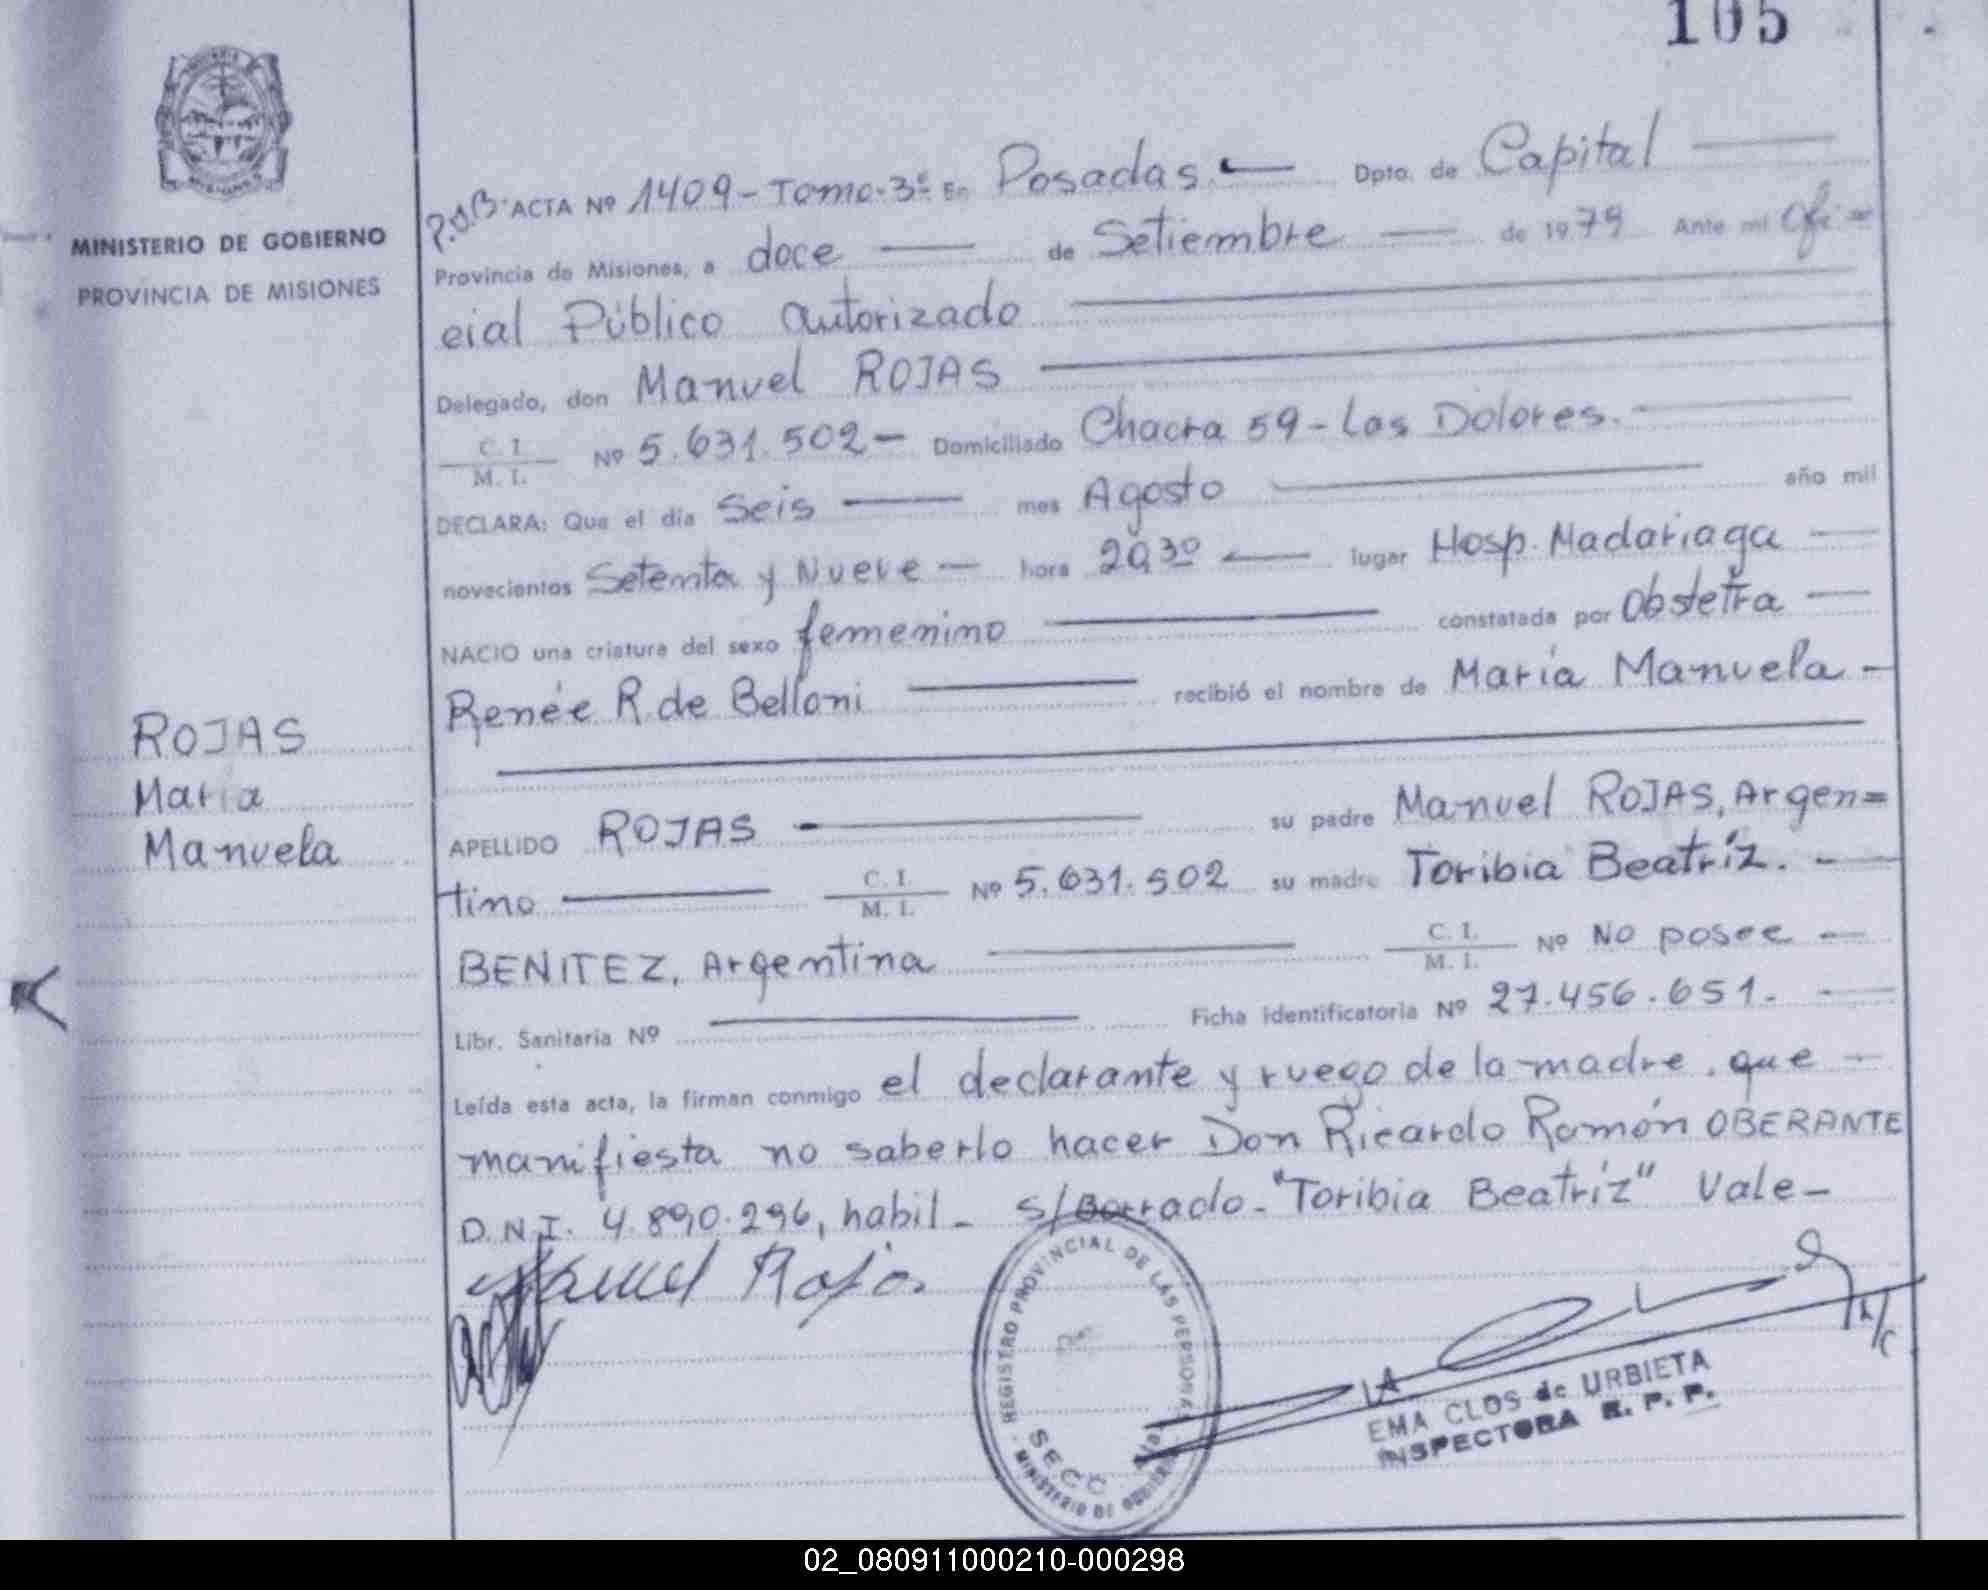 105
MINISTERIO DE GOBIERNO
PROVINCIA DE MISIONES
ACTA Nº 1409 - Tomo - 3º En Posadas. — Dpto. de Capital —
Provincia de Misiones, a doce — de Setiembre — de 1979 Ante mi Ofi=
cial Público autorizado —
Delegado, don Manuel ROJAS —
C. I.
M. I. Nº 5.631.502 - Domiciliado Chacra 59 - Los Dolores. —
DECLARA: Que el día Seis — mes Agosto — año mil
novecientos Setenta y Nueve — hora 20,30 — lugar Hosp. Madariaga —
NACIO una criatura del sexo femenino — constatada por Obstetra —
Renée R. de Belloni — recibió el nombre de María Manuela -
ROJAS
María
Manuela
APELLIDO ROJAS — su padre Manuel ROJAS, Argen=
tino — C. I.
M. I. Nº 5.631.502 su madre Toribia Beatríz. —
BENITEZ, Argentina — C. I.
M. I. Nº No posee —
Libr. Sanitaria Nº — Ficha identificatoria Nº 27.456.651. —
Leída esta acta, la firman conmigo el declarante y ruego de la madre, que —
manifiesta no saberlo hacer Don Ricardo Ramón OBERANTE
D.N.I. 4.890.296, habil - s/Borrado - "Toribia Beatríz" Vale -
Manuel Rojas
REGISTRO PROVINCIAL DE LAS PERSONAS
SECC
MINISTERIO DE GOBIERNO
EMA CLOS de URBIETA
INSPECTORA R. P. P.
02_080911000210-000298